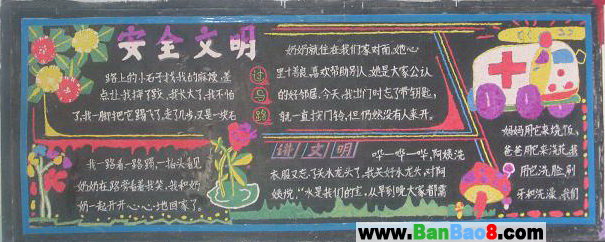 安全文明
路上的小石子找我的麻烦,差
点让我摔了跤,我长大了,我不怕
了,我一脚把它踢飞了,走了几步,又是一块石
我一路看一路踢,一抬头看见
奶奶在路旁看着我笑,我和奶
奶一起开开心心地回家了。
过马路
奶奶就住在我们家对面,她心
里十分善良,喜欢帮助别人,她是大家公认
的好邻居,今天,我出门时忘了带钥匙,
就一直按门铃,但仍然没有人来开。
讲文明
哗—哗—哗,阿姨洗
衣服又忘了关水龙头了,我关好水龙头,对阿
姨说,"水是我们的宝,从早到晚大家都需
妈妈用它来烧饭,
爸爸用它来浇花,我
用它洗脸、刷
牙和洗澡,我们
www.BanBao8.com